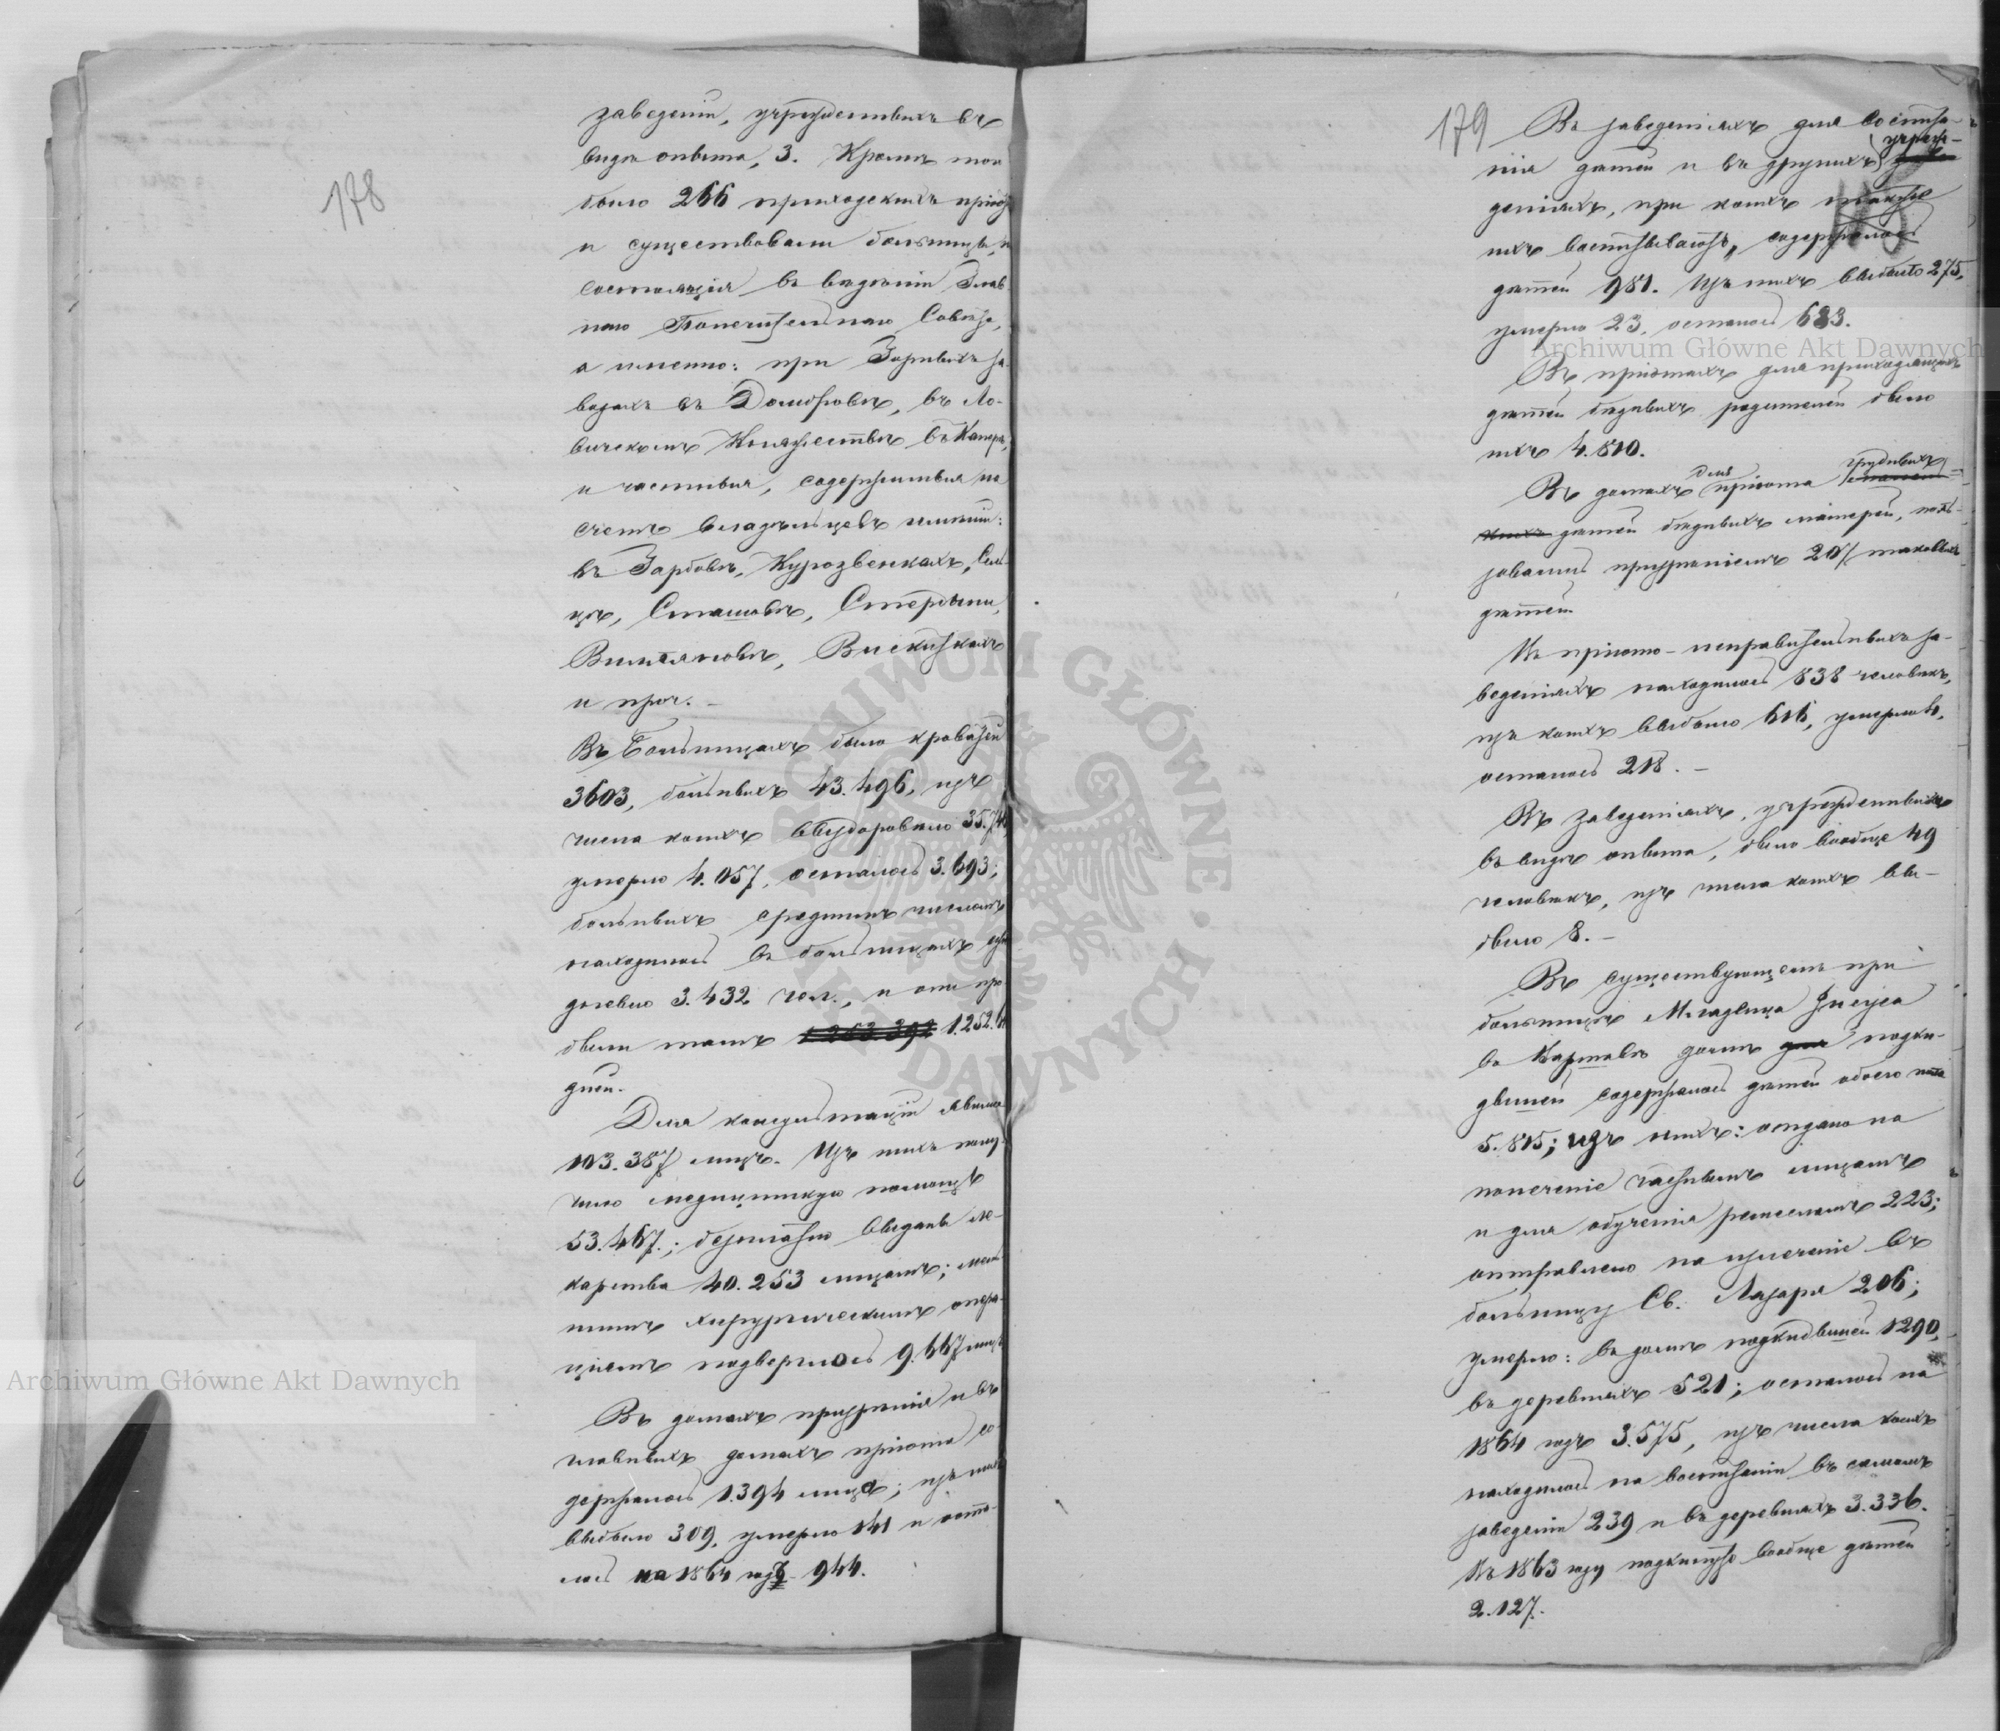 178
заведеніи, учрежденныхъ въ
видѣ опыта, 3. Кромѣ того
было 266 приходскихъ
и существовали больницы,
состоящія въ вѣдѣніи Глав-
наго Попечительнаго Совѣта,
а именно: при Горныхъ за-
водахъ въ Домбровѣ, въ Ло-
вичскомъ Княжествѣ въ
и частныя, содержимыя на
счетъ владѣльцевъ имѣній:
въ Курозвенкахъ,
Сташовѣ,
Вискиткахъ
и проч. —
Въ Больницахъ было кроватей
3603, больныхъ 43.496, изъ
числа коихъ выздоровѣло
умерло 4.057, осталось 3.693;
больныхъ среднимъ числомъ
находилось въ больницахъ еже-
дневно 3.432 чел., и они про-
были тамъ
дней.
Для консультаціи явилось
103.387 лицъ. Изъ нихъ полу-
чило медицинскую помощь
53.467.; безплатно выданы ле-
карства 40.253 лицамъ;
хирургическимъ опера-
ціямъ подверглось 9.667 лицъ
Въ домахъ призрѣнія и въ
главныхъ домахъ пріюта со-
держалось 1.394 лица; изъ нихъ
выбыло 309, умерло 141 и оста-
лось на 1864 годъ 944.
179
Въ заведеніяхъ для воспита-
учреж-
нія дѣтей и въ другихъ
деніяхъ, при коихъ также
ихъ воспитывалось, содержалось
дѣтей 981. Изъ нихъ выбыло 275,
умерло 23, осталось 683.
Archiwum Główne Akt Dawnych
Въ пріютахъ для приходящихъ
дѣтей бѣдныхъ родителей было
ихъ 4.810.
для грудныхъ
Въ домахъ пріюта
дѣтей бѣдныхъ матерей, поль-
зовались призрѣніемъ 207 таковыхъ
дѣтей.
Въ пріюто-исправительныхъ за-
веденіяхъ находилось 838 человѣкъ,
изъ коихъ выбыло 616, умерло 4,
осталось 218. —
Въ заведеніяхъ, учрежденныхъ
въ видѣ опыта, было вообще 49
человѣкъ, изъ числа коихъ вы-
было 8. —
Въ существующемъ при
больницѣ Младенца Іисуса
въ Варшавѣ домѣ подки-
дышей содержалось дѣтей обоего пола
5.815; изъ нихъ: отдано на
попеченіе частнымъ лицамъ
и для обученія ремесламъ 223;
отправлено на излеченіе въ
больницу Св. Лазаря 206;
умерло: въ домѣ подкидышей 1290,
въ деревняхъ 521; осталось на
1864 годъ 3.575, изъ числа коихъ
находилось на воспитаніи въ самомъ
заведеніи 239 и въ деревняхъ 3.336.
Въ 1863 году подкинуто вообще дѣтей
2.127.
ARCHIWUM GŁÓWNE AKT DAWNYCH
Archiwum Główne Akt Dawnych